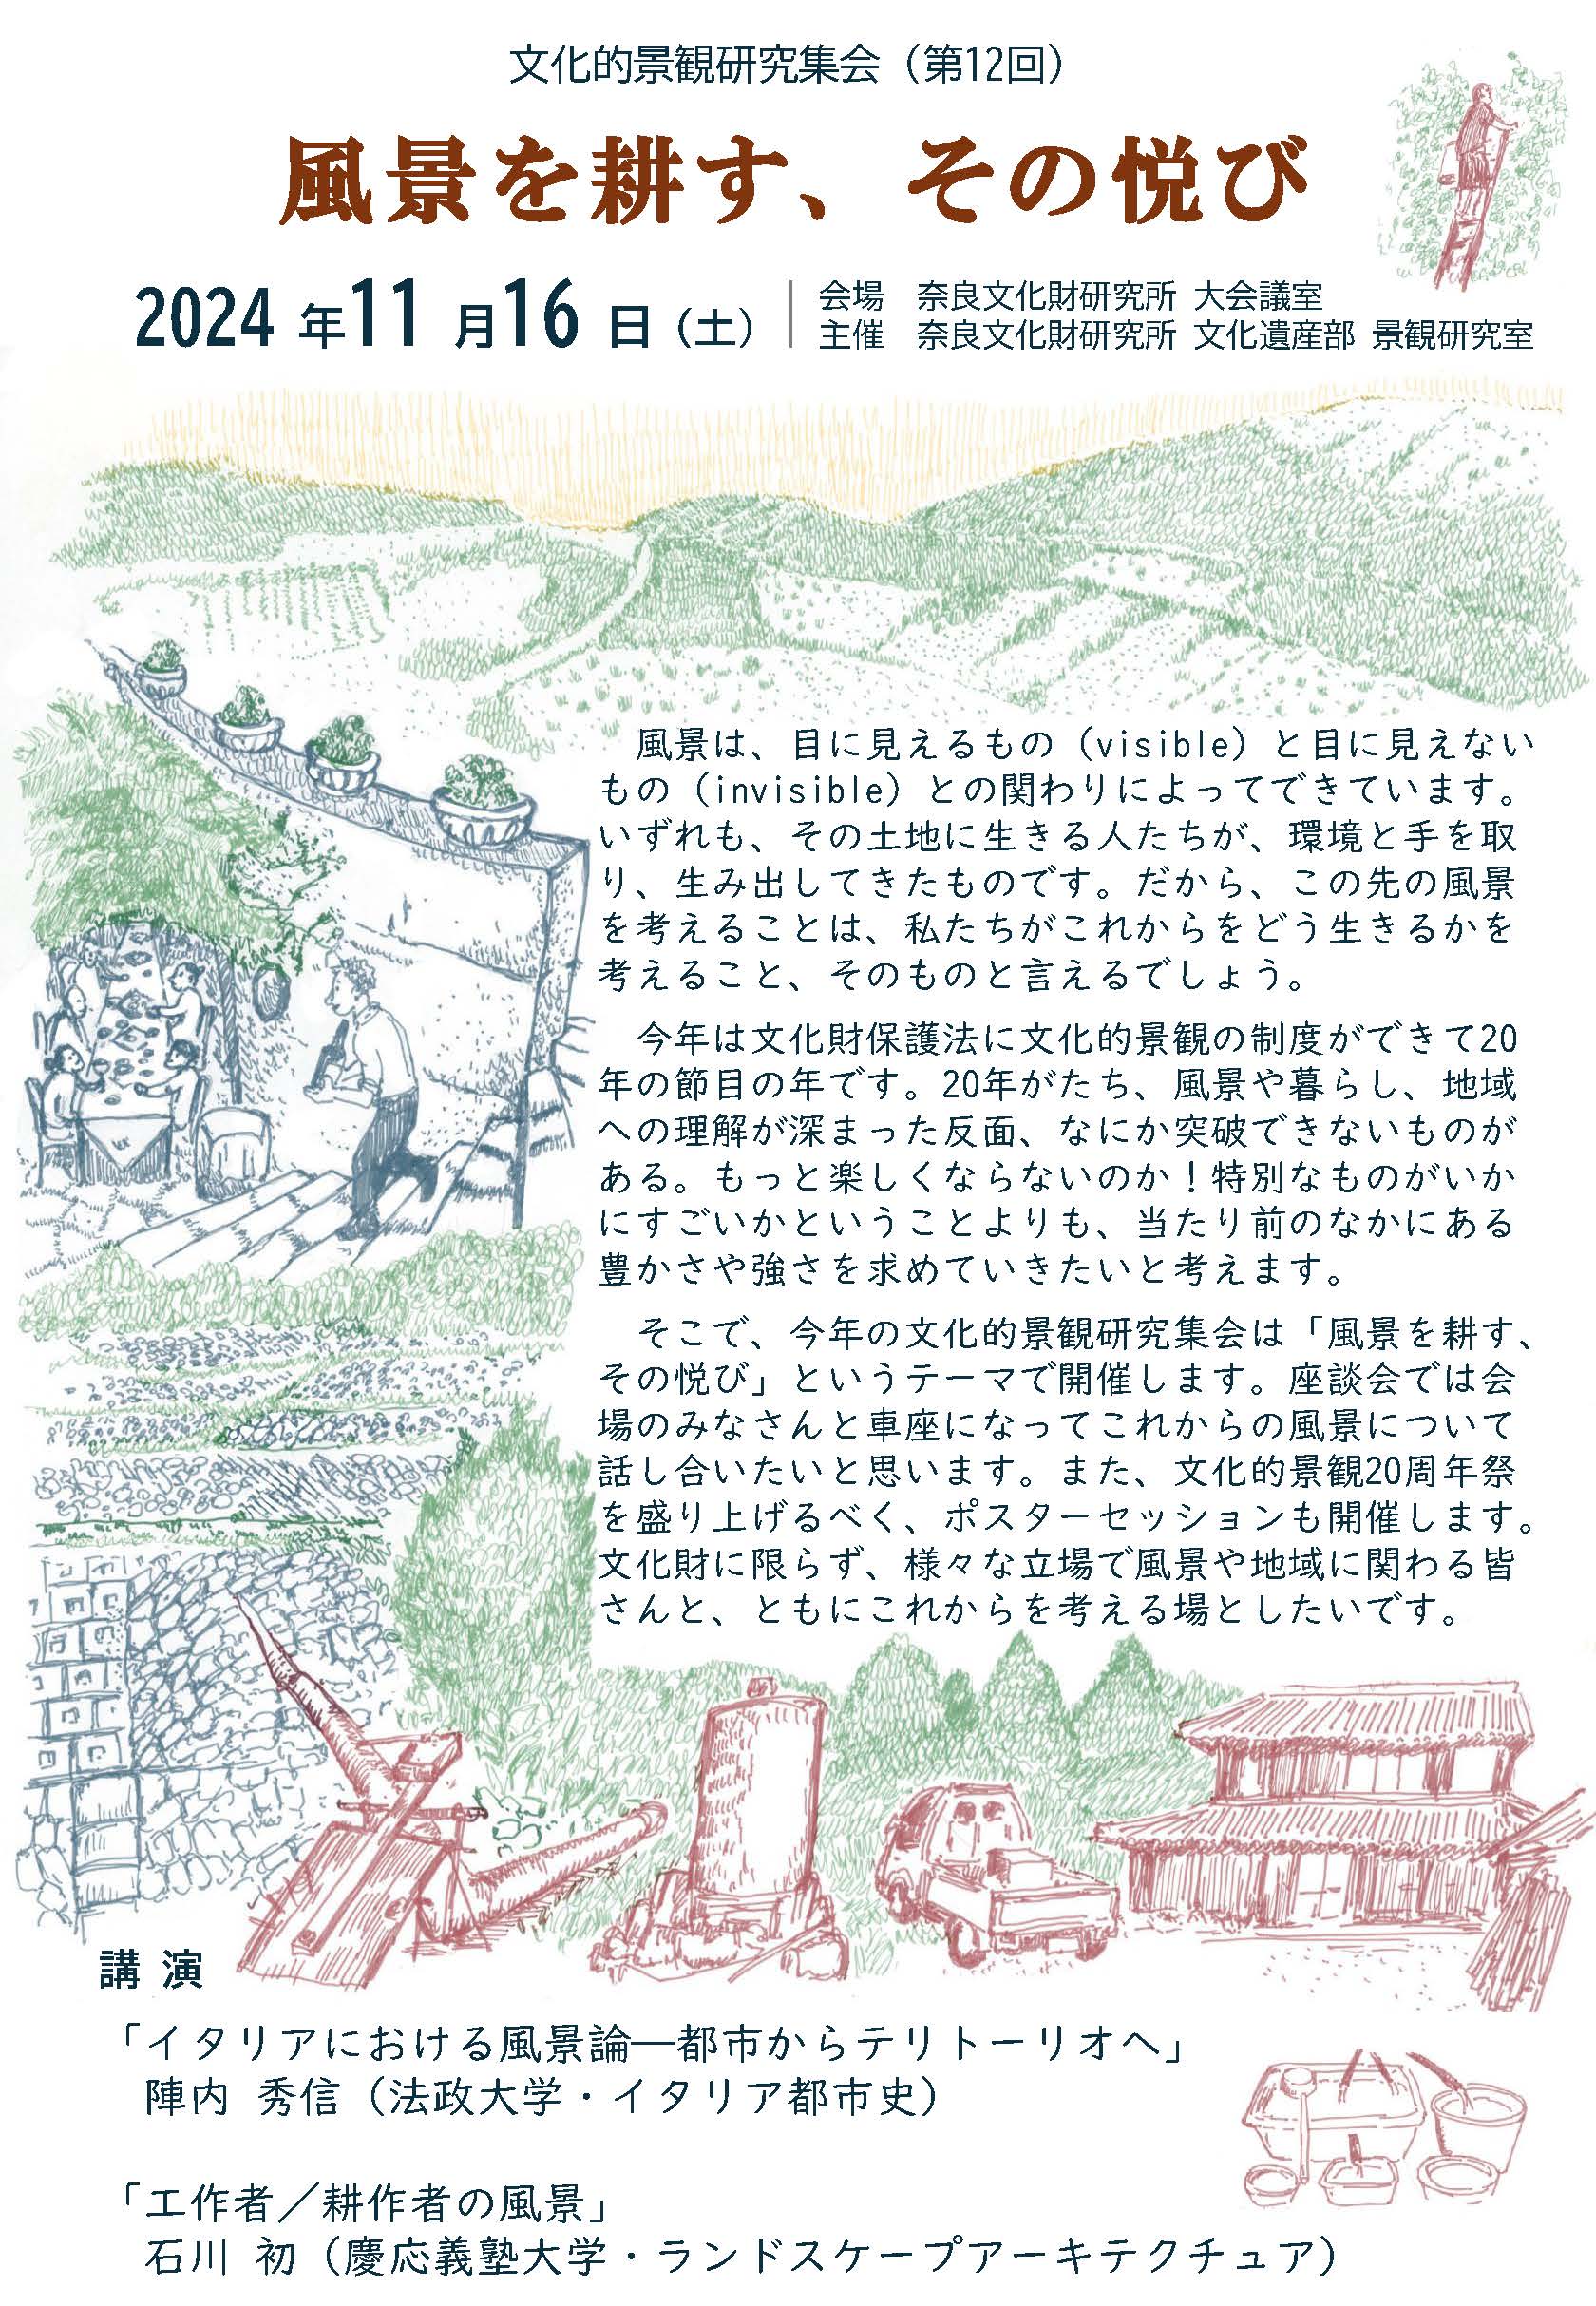 文化的景観研究集会（第12回）
風景を耕す、その悦び
2024 年11 月16 日（土）
会場　奈良文化財研究所 大会議室
主催　奈良文化財研究所 文化遺産部 景観研究室
風景は、目に見えるもの（visible）と目に見えない
もの（invisible）との関わりによってできています。
いずれも、その土地に生きる人たちが、環境と手を取
り、生み出してきたものです。だから、この先の風景
を考えることは、私たちがこれからをどう生きるかを
考えること、そのものと言えるでしょう。
今年は文化財保護法に文化的景観の制度ができて20
年の節目の年です。20年がたち、風景や暮らし、地域
への理解が深まった反面、なにか突破できないものが
ある。もっと楽しくならないのか！特別なものがいか
にすごいかということよりも、当たり前のなかにある
豊かさや強さを求めていきたいと考えます。
そこで、今年の文化的景観研究集会は「風景を耕す、
その悦び」というテーマで開催します。座談会では会
場のみなさんと車座になってこれからの風景について
話し合いたいと思います。また、文化的景観20周年祭
を盛り上げるべく、ポスターセッションも開催します。
文化財に限らず、様々な立場で風景や地域に関わる皆
さんと、ともにこれからを考える場としたいです。
講 演
「イタリアにおける風景論―都市からテリトーリオへ」
陣内 秀信（法政大学・イタリア都市史）
「工作者／耕作者の風景」
石川 初（慶応義塾大学・ランドスケープアーキテクチュア）